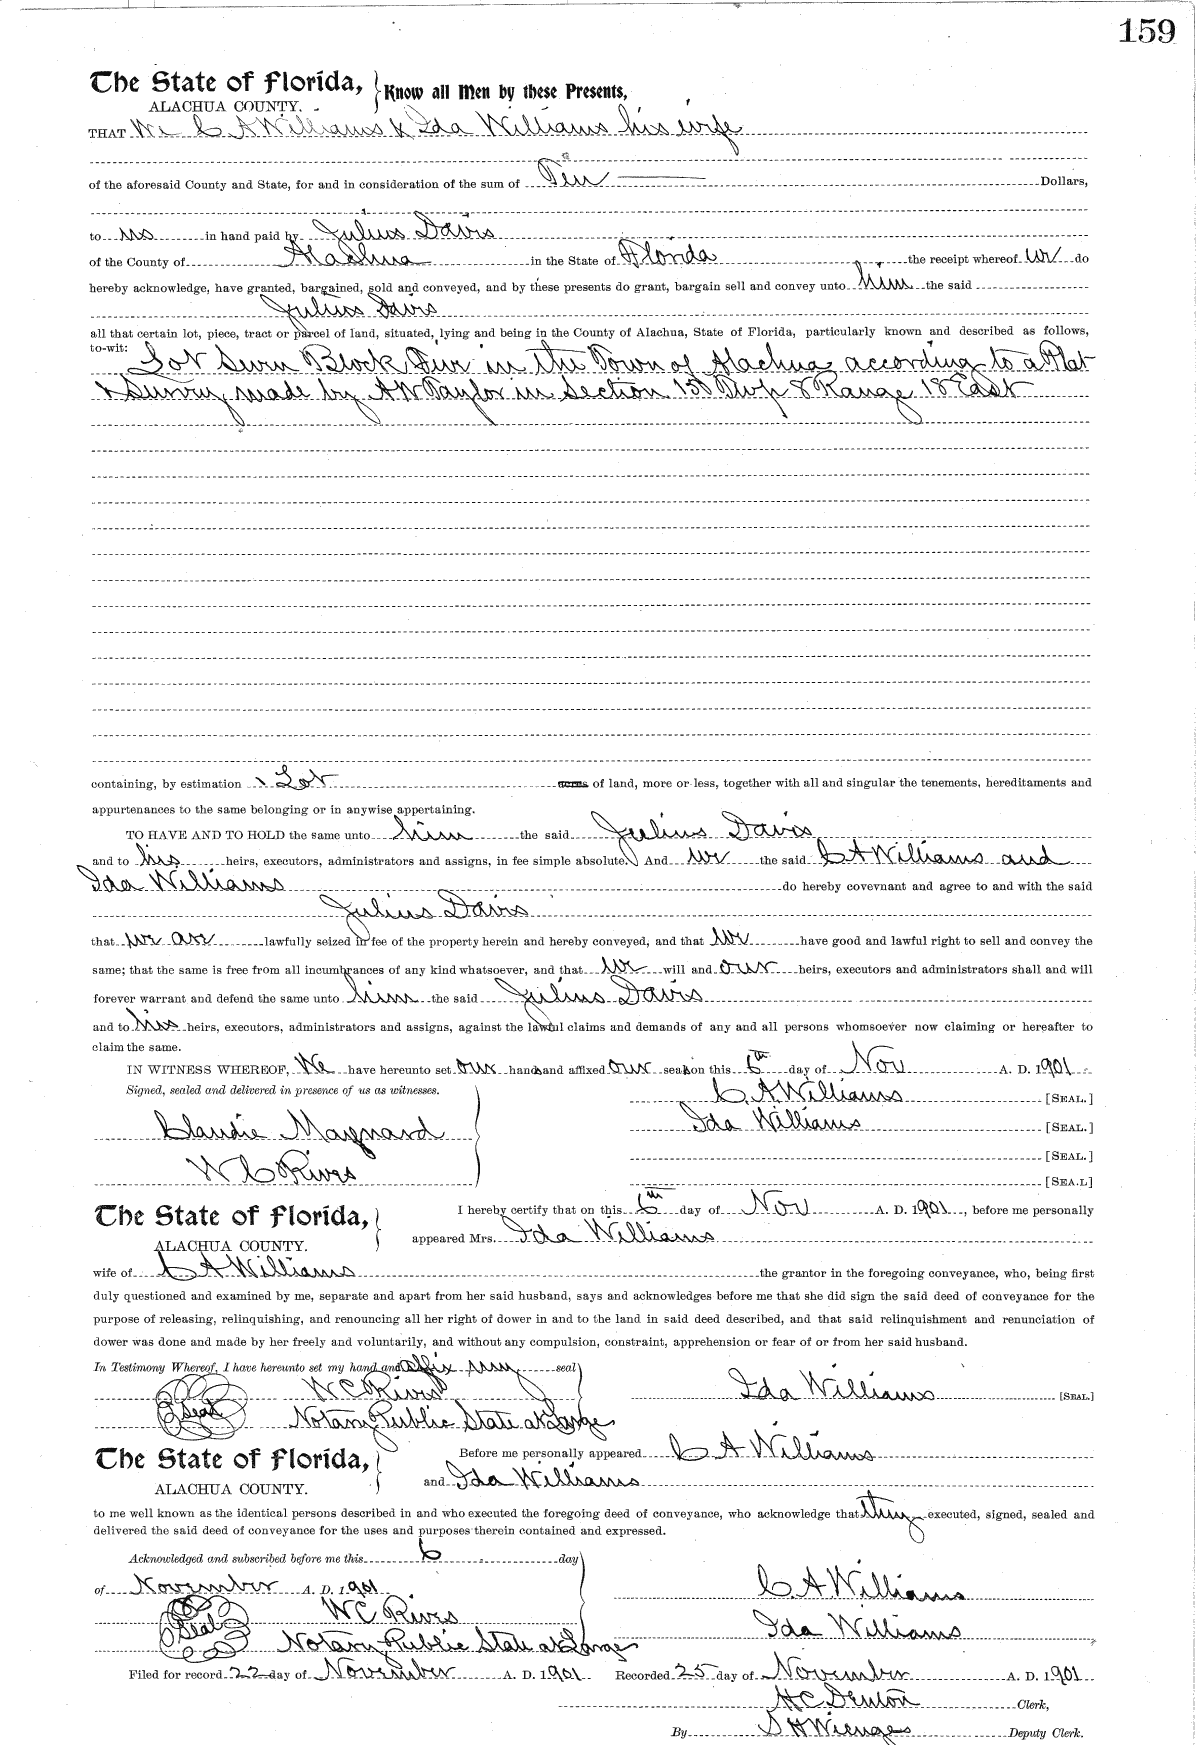 159
The State of Florida,
ALACHUA COUNTY.
Know all Men by these Presents,
THAT We C A Williams & Ida Williams his wife
of the aforesaid County and State, for and in consideration of the sum of Ten Dollars,
to us in hand paid by Julius Davis
of the County of Alachua in the State of Florida the receipt whereof we do
hereby acknowledge, have granted, bargained, sold and conveyed, and by these presents do grant, bargain sell and convey unto him the said
Julius Davis
all that certain lot, piece, tract or parcel of land, situated, lying and being in the County of Alachua, State of Florida, particularly known and described as follows,
to-wit:
Lot Seven Block in the Town of Alachua according to a Plat
& Survey made by A W Taylor in Section 15 Twp 8 Range 18 East
containing, by estimation 1 Lot acres of land, more or less, together with all and singular the tenements, hereditaments and
appurtenances to the same belonging or in anywise appertaining.
TO HAVE AND TO HOLD the same unto him the said Julius Davis
and to his heirs, executors, administrators and assigns, in fee simple absolute. And we the said C A Williams and
Ida Williams do hereby covevnant and agree to and with the said
Julius Davis
that we are lawfully seized in fee of the property herein and hereby conveyed, and that we have good and lawful right to sell and convey the
same; that the same is free from all incumbrances of any kind whatsoever, and that we will and our heirs, executors and administrators shall and will
forever warrant and defend the same unto him the said Julius Davis
and to his heirs, executors, administrators and assigns, against the lawful claims and demands of any and all persons whomsoever now claiming or hereafter to
claim the same.
IN WITNESS WHEREOF, We have hereunto set our hands and affixed our seals on this 6th day of Nov A. D. 1901
Signed, sealed and delivered in presence of us as witnesses.
C. A. Williams [SEAL.]
Ida Williams [SEAL.]
Claudie Maynard
[SEAL.]
W C Rives
[SEA.L]
The State of Florida,
ALACHUA COUNTY.
I hereby certify that on this 6th day of Nov A. D. 1901, before me personally
appeared Mrs. Ida Williams
wife of C A Williams the grantor in the foregoing conveyance, who, being first
duly questioned and examined by me, separate and apart from her said husband, says and acknowledges before me that she did sign the said deed of conveyance for the
purpose of releasing, relinquishing, and renouncing all her right of dower in and to the land in said deed described, and that said relinquishment and renunciation of
dower was done and made by her freely and voluntarily, and without any compulsion, constraint, apprehension or fear of or from her said husband.
In Testimony Whereof, I have hereunto set my hand and affix my seal
W C Rives
Ida Williams [SEAL.]
Seal
Notary Public State at Large
The State of Florida,
ALACHUA COUNTY.
Before me personally appeared C A Williams
and Ida Williams
to me well known as the identical persons described in and who executed the foregoing deed of conveyance, who acknowledge that they executed, signed, sealed and
delivered the said deed of conveyance for the uses and purposes therein contained and expressed.
Acknowledged and subscribed before me this 6 day
of November A. D. 1901
C. A Williams
W C Rives
Seal
Ida Williams
Notary Public State at Large
Filed for record 22 day of November A. D. 1901 Recorded 25 day of November A. D. 1901
H C Denton Clerk,
By S H Wienges Deputy Clerk.